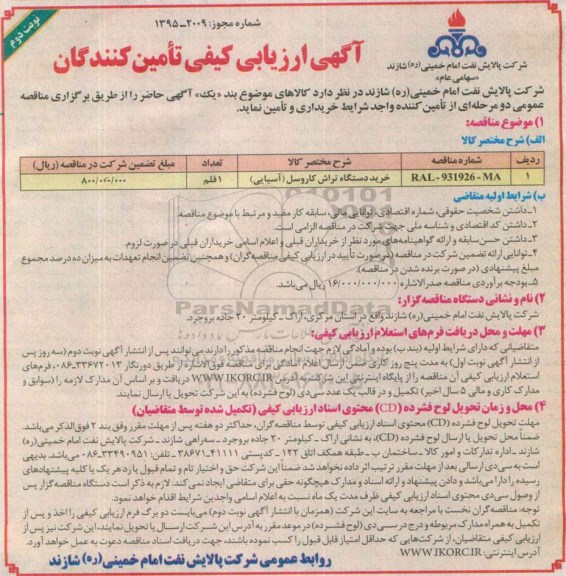 شماره مجوز: ۲۰۰۹ـ ۱۳۹۵
نوبت دوم
آگهی ارزیابی کیفی تأمین کنندگان
شرکت پالایش نفت امام خمینی (ره) شازند
«سهامی عام»
شرکت پالایش نفت امام خمینی(ره) شازند در نظر دارد کالاهای موضوع بند «یک» آگهی حاضر را از طریق برگزاری مناقصه
عمومی دو مرحله‌ای از تأمین کننده واجد شرایط خریداری و تأمین نماید.
۱) موضوع مناقصه:
الف) شرح مختصر کالا
ردیف شماره مناقصه شرح مختصر کالا تعداد مبلغ تضمین شرکت در مناقصه (ریال)
۱ RAL - 931926 - MA خرید دستگاه تراش کاروسل (آسیایی) ۱ قلم ۸۰۰/۰۰۰/۰۰۰
ب) شرایط اولیه متقاضی
۱ـ داشتن شخصیت حقوقی، شماره اقتصادی، توانایی مالی، سابقه کار مفید و مرتبط با موضوع مناقصه.
۲ـ داشتن کد اقتصادی و شناسه ملی جهت شرکت در مناقصه الزامی است.
۳ـ داشتن حسن سابقه و ارائه گواهینامه‌های مورد نظر از خریداران قبلی و اعلام اسامی خریداران قبلی در صورت لزوم.
۴ـ توانایی ارائه تضمین شرکت در مناقصه (در صورت تأیید در ارزیابی کیفی مناقصه‌گران) و همچنین تضمین انجام تعهدات به میزان ده درصد مجموع
مبلغ پیشنهادی (در صورت برنده شدن در مناقصه).
۵ـ بودجه برآوردی مناقصه صدرالاشاره ۱۶/۰۰۰/۰۰۰/۰۰۰ ریال می‌باشد.
۲) نام و نشانی دستگاه مناقصه‌گزار:
شرکت پالایش نفت امام خمینی(ره) شازند واقع در استان مرکزی، اراک ـ کیلومتر ۲۰ جاده بروجرد.
۳) مهلت و محل دریافت فرم‌های استعلام ارزیابی کیفی:
متقاضیانی که دارای شرایط اولیه (بند ب) بوده و آمادگی لازم جهت انجام مناقصه مذکور را دارند می‌توانند پس از انتشار آگهی نوبت دوم (سه روز پس
از انتشار آگهی نوبت اول) به مدت پنج روز کاری ضمن ارسال اعلام آمادگی برای مناقصه فوق الاشاره از طریق دورنگار ۳۳۶۷۲۰۱۳ـ۰۸۶، فرم‌های
استعلام ارزیابی کیفی آن مناقصه را از پایگاه اینترنتی این شرکت به آدرس WWW.IKORC.IR دریافت و بر اساس آن مدارک لازمه را (سوابق و
مدارک کاری و مالی ۵ سال اخیر) تکمیل و در قالب یک عدد سی‌دی (لوح فشرده) به این شرکت تحویل یا ارسال نمایند.
۴) محل و زمان تحویل لوح فشرده (CD) محتوی اسناد ارزیابی کیفی (تکمیل شده توسط متقاضیان)
مهلت تحویل لوح فشرده (CD) محتوی اسناد ارزیابی کیفی توسط مناقصه‌گران، حداکثر دو هفته پس از مهلت مقرر وفق بند ۲ فوق‌الذکر می‌باشد.
ضمناً محل تحویل یا ارسال لوح فشرده (CD)، به نشانی اراک ـ کیلومتر ۲۰ جاده بروجرد ـ سه‌راهی شازند ـ شرکت پالایش نفت امام خمینی(ره)
شازند ـ اداره تدارکات و امور کالا ـ ساختمان ب ـ طبقه همکف اتاق ۱۲۲ ـ کدپستی ۴۱۱۱۱ـ۳۸۶۷۱ ـ تلفن: ۳۳۴۹۰۹۵۱ـ۰۸۶ می‌باشد. بدیهی
است به سی‌دی ارسالی بعد از مهلت مقرر ترتیب اثر داده نخواهد شد ضمناً این شرکت حق و اختیار تام و تمام قبول یا رد هر یک یا کلیه پیشنهادهای
رسیده را دارا می‌باشد و دادن پیشنهاد و ارائه اسناد و مدارک هیچگونه حقی برای متقاضی ایجاد نمی‌کند. لازم به ذکر است دستگاه مناقصه‌گزار پس
از وصول سی‌دی محتوی اسناد ارزیابی کیفی ظرف مدت یک ماه نسبت به اعلام اسامی واجدین شرایط اقدام خواهد نمود.
توجه: مناقصه‌گران نخست با مراجعه به سایت این شرکت (همزمان با انتشار آگهی نوبت دوم) می‌بایست دو برگ فرم ارزیابی کیفی را اخذ و پس از
تکمیل به همراه مدارک مربوطه و درج در سی‌دی (لوح فشرده) در موعد مقرر به آدرس این شرکت ارسال یا تحویل نمایند، این شرکت نیز پس از
ارزیابی کیفی متقاضیان، از شرکت‌هایی که حداقل امتیاز قابل قبول را کسب نموده باشند، جهت دریافت اسناد مناقصه دعوت به عمل خواهد آورد.
آدرس اینترنتی: WWW.IKORC.IR
روابط عمومی شرکت پالایش نفت امام خمینی(ره) شازند
ParsNamadData